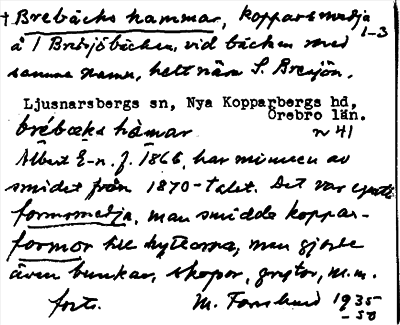 † Brebäcks hammar, kopparsmedja
å 1 Bresjöbäcken, vid bäcken med 1-3
samma namn, helt nära S. Bresjön.
Ljusnarsbergs sn, Nya Kopparbergs hd,
Örebro län.
brébæks hàmar n 41
Albert E-n. f. 1866, har minnen av
smidet från 1870-talet. Det var
formsmedja, man smidde koppar-
formor till hyttorna, men gjorde
även bunkar, skopor, grytor, m.m.
forts. M. Forslund 1935
-50